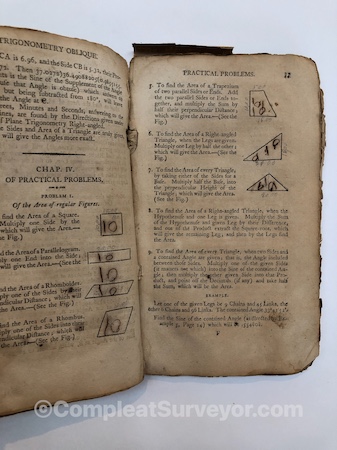 TRIGONOMETRY OBLIQUE.
CA is 6.96, and the Side CB is 5.32, their
is the Sine of the Supplement of the Angle
use that Angle is obtuse) which
but being subtracted from 180°, will
the Angle at C.
Degrees, Minutes and Seconds, according to
lines, are found by the Directions given under
Plane Trigonometry Right-angled.
Sides and Area of a Triangle are given,
will give the Angles exact.
CHAP. IV.
OF PRACTICAL PROBLEMS,
PROBLEM I.
Of the Area of regular Figures.
find the Area of a Square.
Multiply one Side by the
which will give the Area.—
he Fig.)
10
find the Area of a Parallelogram.
ply one End into the Side;
will give the Area.—(See the
10
10
find the Area of a Rhomboides.
ply one of the Sides by
dicular Distance; which will
Area.—(See the Fig.)
10
find the Area of a Rhombus.
ply one of the Sides into
dicular Distance; which will
the Area.—(See the Fig.)
10
PRACTICAL PROBLEMS. 37
5. To find the Area of a Trapezium
of two parallel Sides or Ends. Add
the two parallel Sides or Ends to-
gether, and multiply the Sum by
half their perpendicular Distance;
which will give the Area.—(See the
Fig.)
6. To find the Area of a Right-angled
Triangle, when the Legs are given.
Multiply one Leg by half the other;
which will give the Area.—(See the
Fig.)
7. To find the Area of every Triangle,
by taking either of the Sides for a
Base. Multiply half the Base, into
the perpendicular Height of the
Triangle; which will give the Area.
(See the Fig.)
8. To find the Area of a Right-angled Triangle, when the
Hypothenuse and one Leg are given. Multiply the Sum
of the Hypothenuse and given Leg by their Difference,
and out of the Product extract the Square root, which
will give the remaining Leg; and then by the Legs find
the Area.
9. To find the Area of every Triangle, when two Sides and
a contained Angle are given; that is, the Angle included
between their Sides. Multiply one of the given Sides
into half the Sine of the contained An-
gle; then multiply the other given Side into the Pro-
duct, and point off the Decimals, (if any) and take half
the Sum, which will be the Area.
EXAMPLE.
Let one of given Legs be 9 Chains and 25 Links, the
other 6 Chains and 50 Links. The contained Angle
Find the Sine of the contained Angle (as directed
ample 3, Page 24) which will
©CompleatSurveyor.com